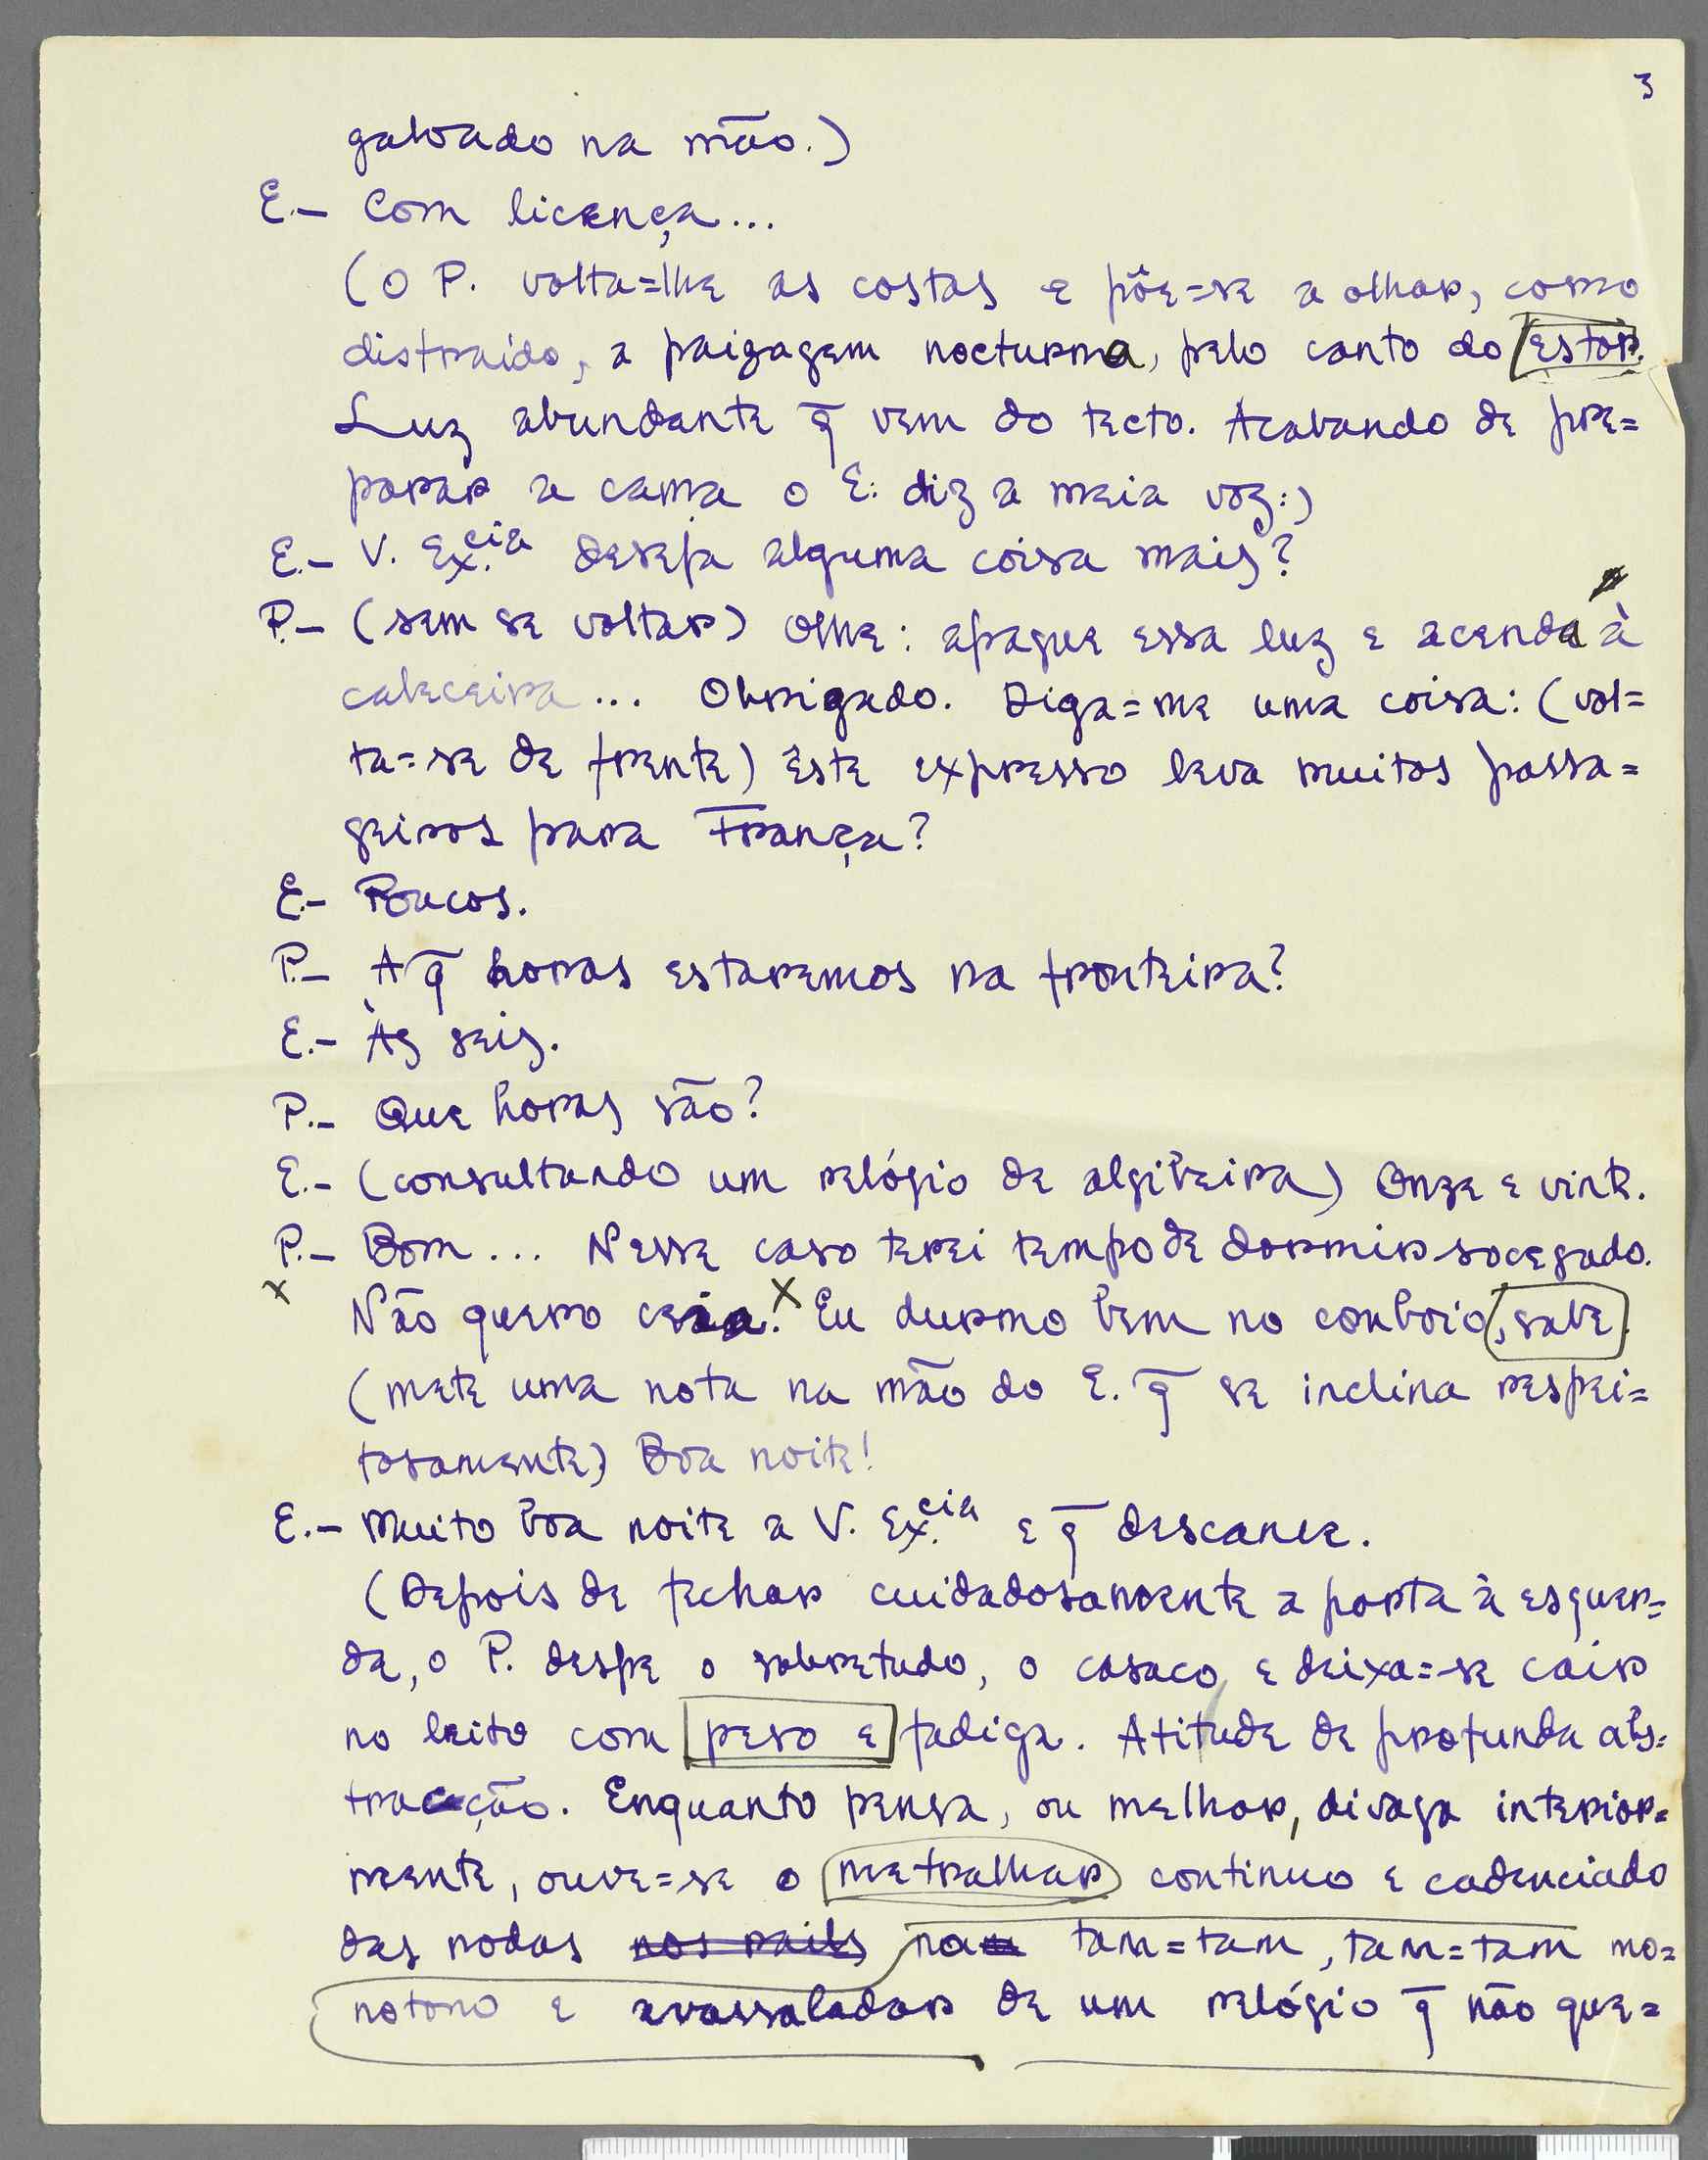 3
galoado na mão.)
E.- Com licença...
(O P. volta=lhe as costas e põe=se a olhar, como
distraido, a paizagem nocturna, pelo canto do estor.
Luz abundante q̄ vem do tecto. Acabando de pre=
parar a cama o E. diz a meia voz:)
E.- V. Ex.cia deseja alguma coisa mais?
P.- (sem se voltar) Olhe: apague essa luz e acenda à
cabeceira... Obrigado. Diga=me uma coisa: (vol=
ta=se de frente) Êste expresso leva muitos passa=
geiros para França?
E.- Poucos.
P.- A q̄ horas estaremos na fronteira?
E.- Às seis.
P.- Que horas são?
E.- (consultando um relógio de algibeira) Onze e vinte.
P.- Bom... Nesse caso terei tempo de dormir socegado.
x Não quero ceia. x Eu durmo bem no comboio, sabe.
(mete uma nota na mão do E. q̄ se inclina respei=
tosamente) Boa noite!
E.- Muito boa noite a V. Ex.cia e q̄ descance.
(Depois de fechar cuidadosamente a porta à esquer=
da, o P. despe o sobretudo, o casaco, e deixa=se cair
no leito com peso e fadiga. Atitude de profunda abs=
tracção. Enquanto pensa, ou melhor, divaga interior=
mente, ouve=se o metralhar continuo e cadenciado
das rodas nos rails no tam=tam, tam=tam mo=
notono e avassalador de um relógio q̄ não que=